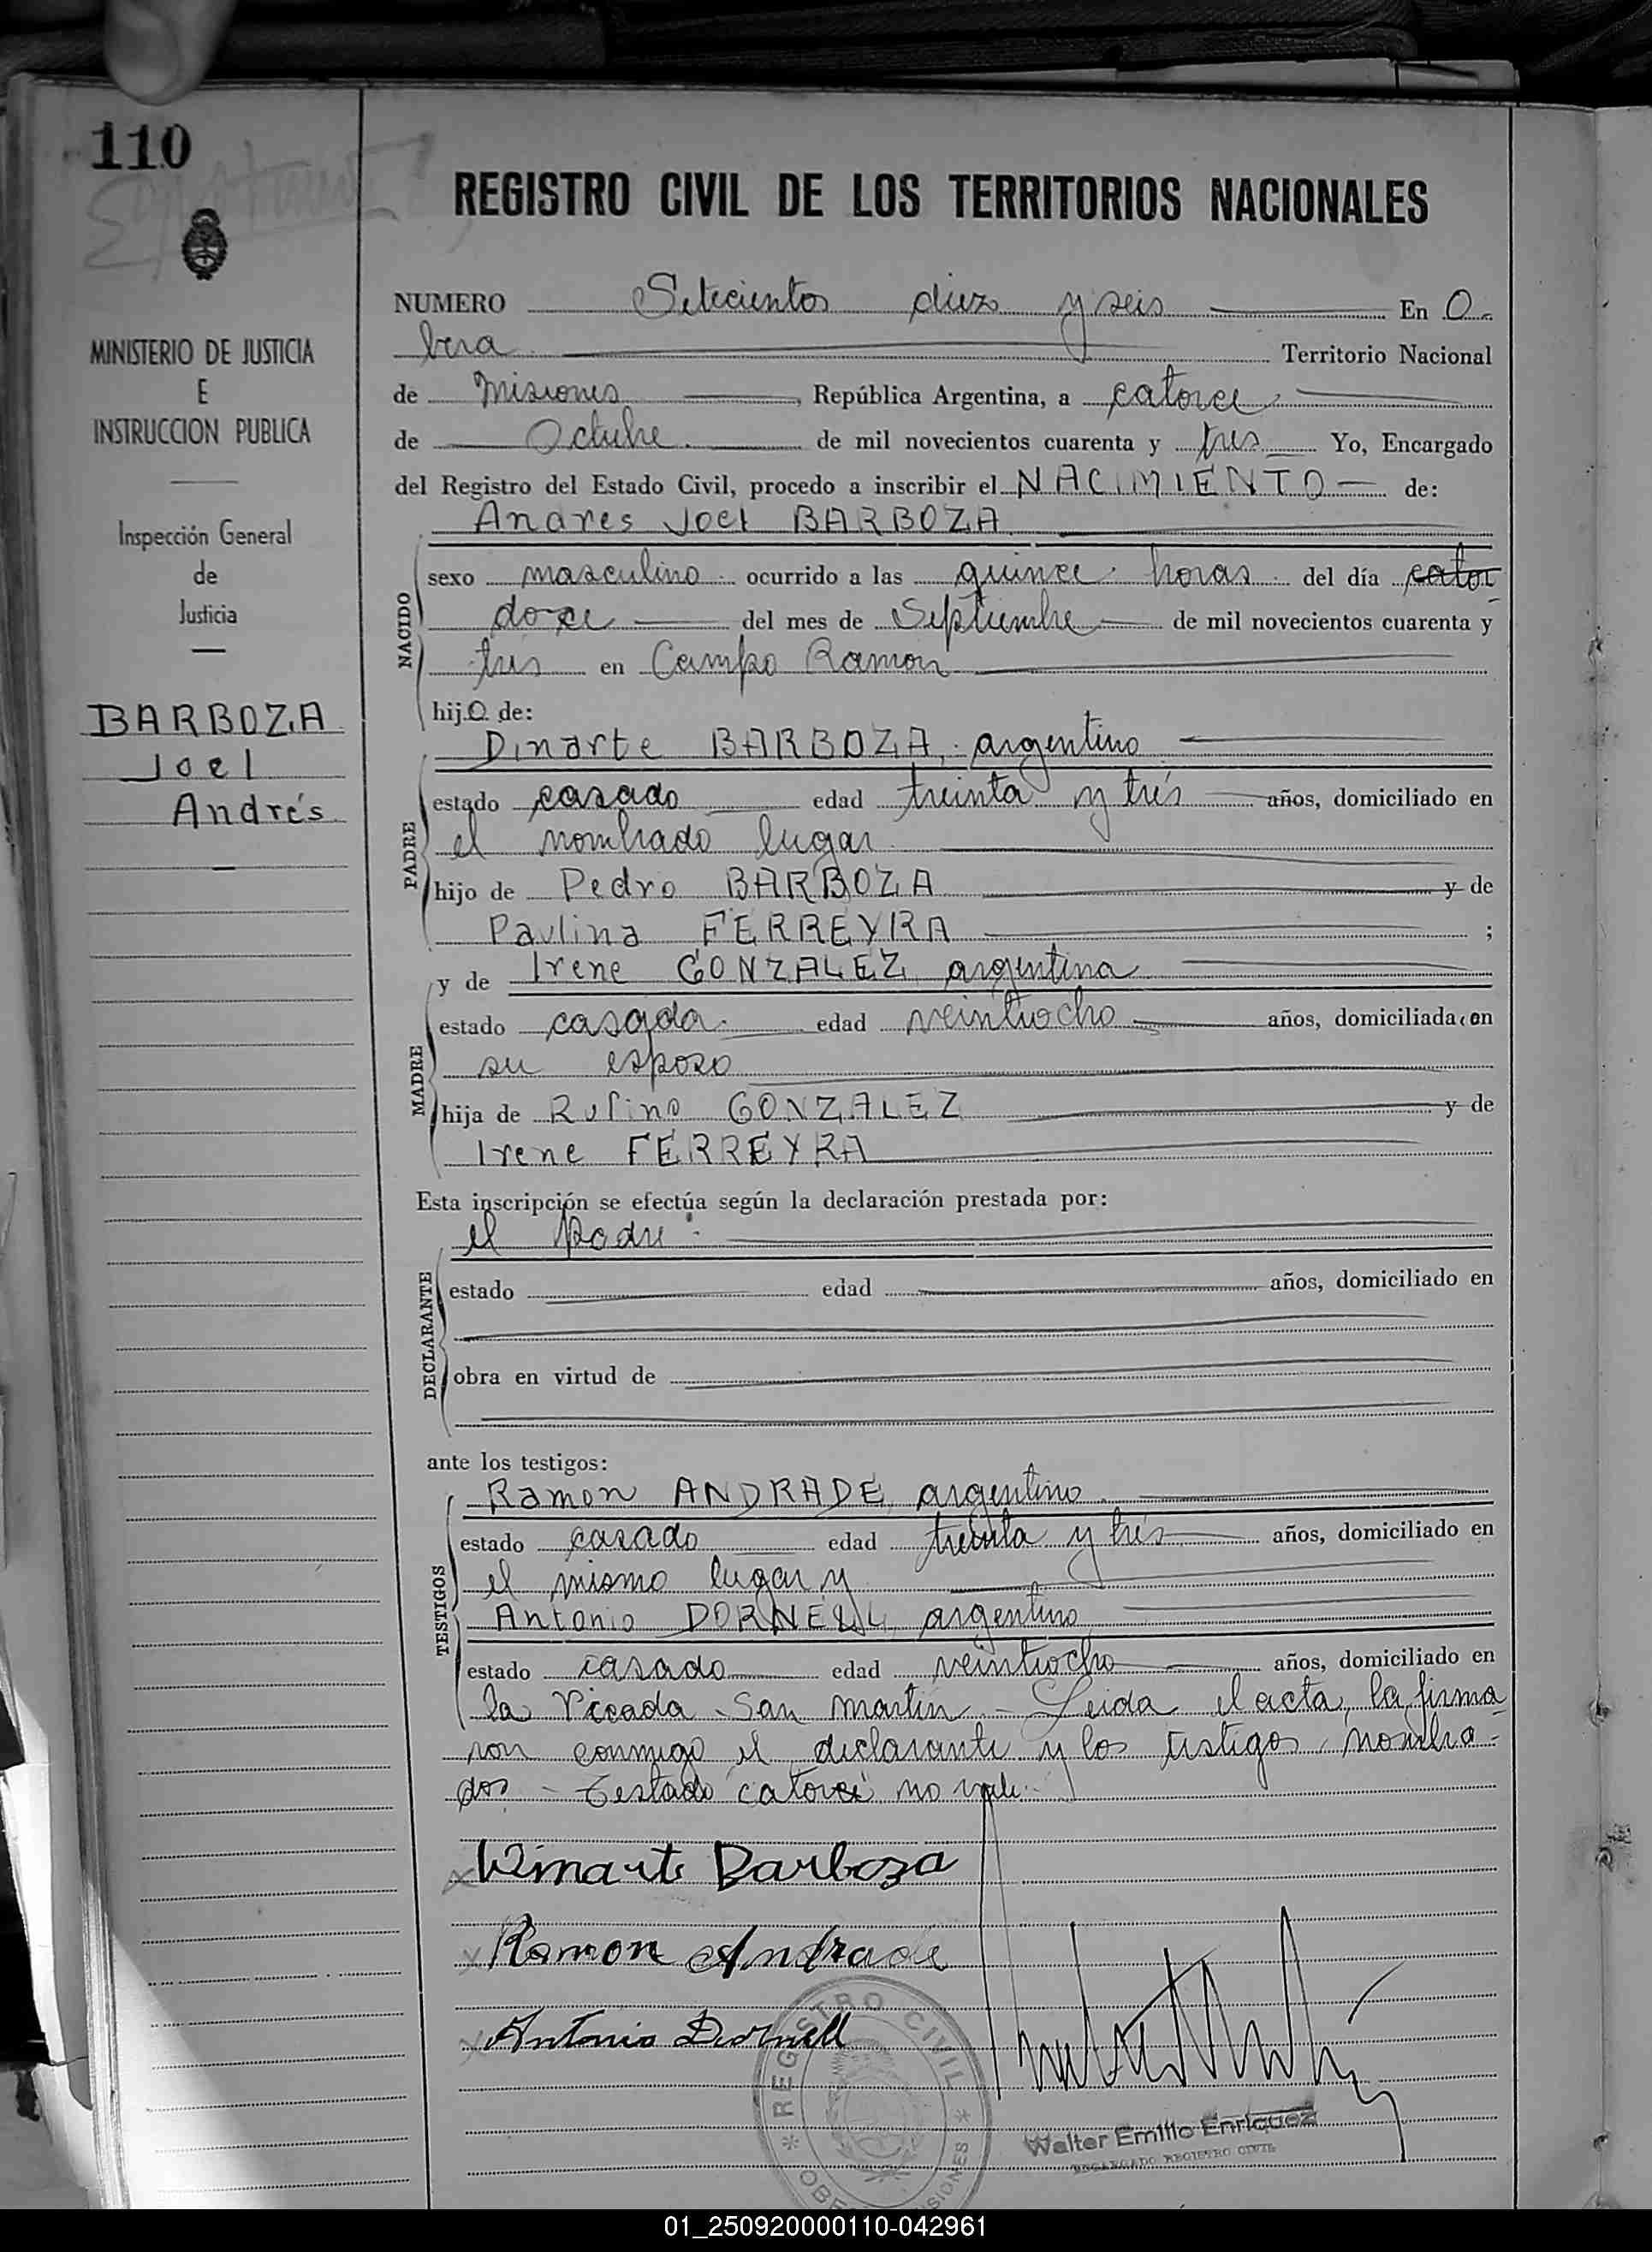 110
REGISTRO CIVIL DE LOS TERRITORIOS NACIONALES
MINISTERIO DE JUSTICIA
E
INSTRUCCION PUBLICA
Inspección General
de
Justicia
BARBOZA
Joel
Andrés
NUMERO Setecientos diez y seis En O-
bera Territorio Nacional
de Misiones, República Argentina, a catorce
de Octubre. de mil novecientos cuarenta y tres Yo, Encargado
del Registro del Estado Civil, procedo a inscribir el NACIMIENTO de:
Andres Joel BARBOZA
NACIDO
sexo masculino. ocurrido a las quince horas del día cator
doce del mes de Septiembre de mil novecientos cuarenta y
tres en Campo Ramon
hijo de:
PADRE
Dinarte BARBOZA, argentino
estado casado edad treinta y trés años, domiciliado en
el nombrado lugar
hijo de Pedro BARBOZA y de
Paulina FERREYRA ;
MADRE
y de Irene GONZALEZ, argentina
estado casada. edad veintiocho años, domiciliada con
su esposo
hija de Rufino GONZALEZ y de
Irene FERREYRA
Esta inscripción se efectúa según la declaración prestada por:
DECLARANTE
el Padre.
estado edad años, domiciliado en
obra en virtud de
ante los testigos:
TESTIGOS
Ramon ANDRADE, argentino
estado casado edad treinta y trés años, domiciliado en
el mismo lugar y
Antonio DORNELL, argentino
estado casado edad veintiocho años, domiciliado en
la Picada San Martin - Leida el acta, la firma
ron conmigo el declarante y los testigos nombra-
dos - Testado "catorce" no vale.-
Dinarte Barboza
Ramon Andrade
Antonio Dornell
REGISTRO CIVIL
Walter Emilio Enriquez
ENCARGADO REGISTRO CIVIL
01_250920000110-042961